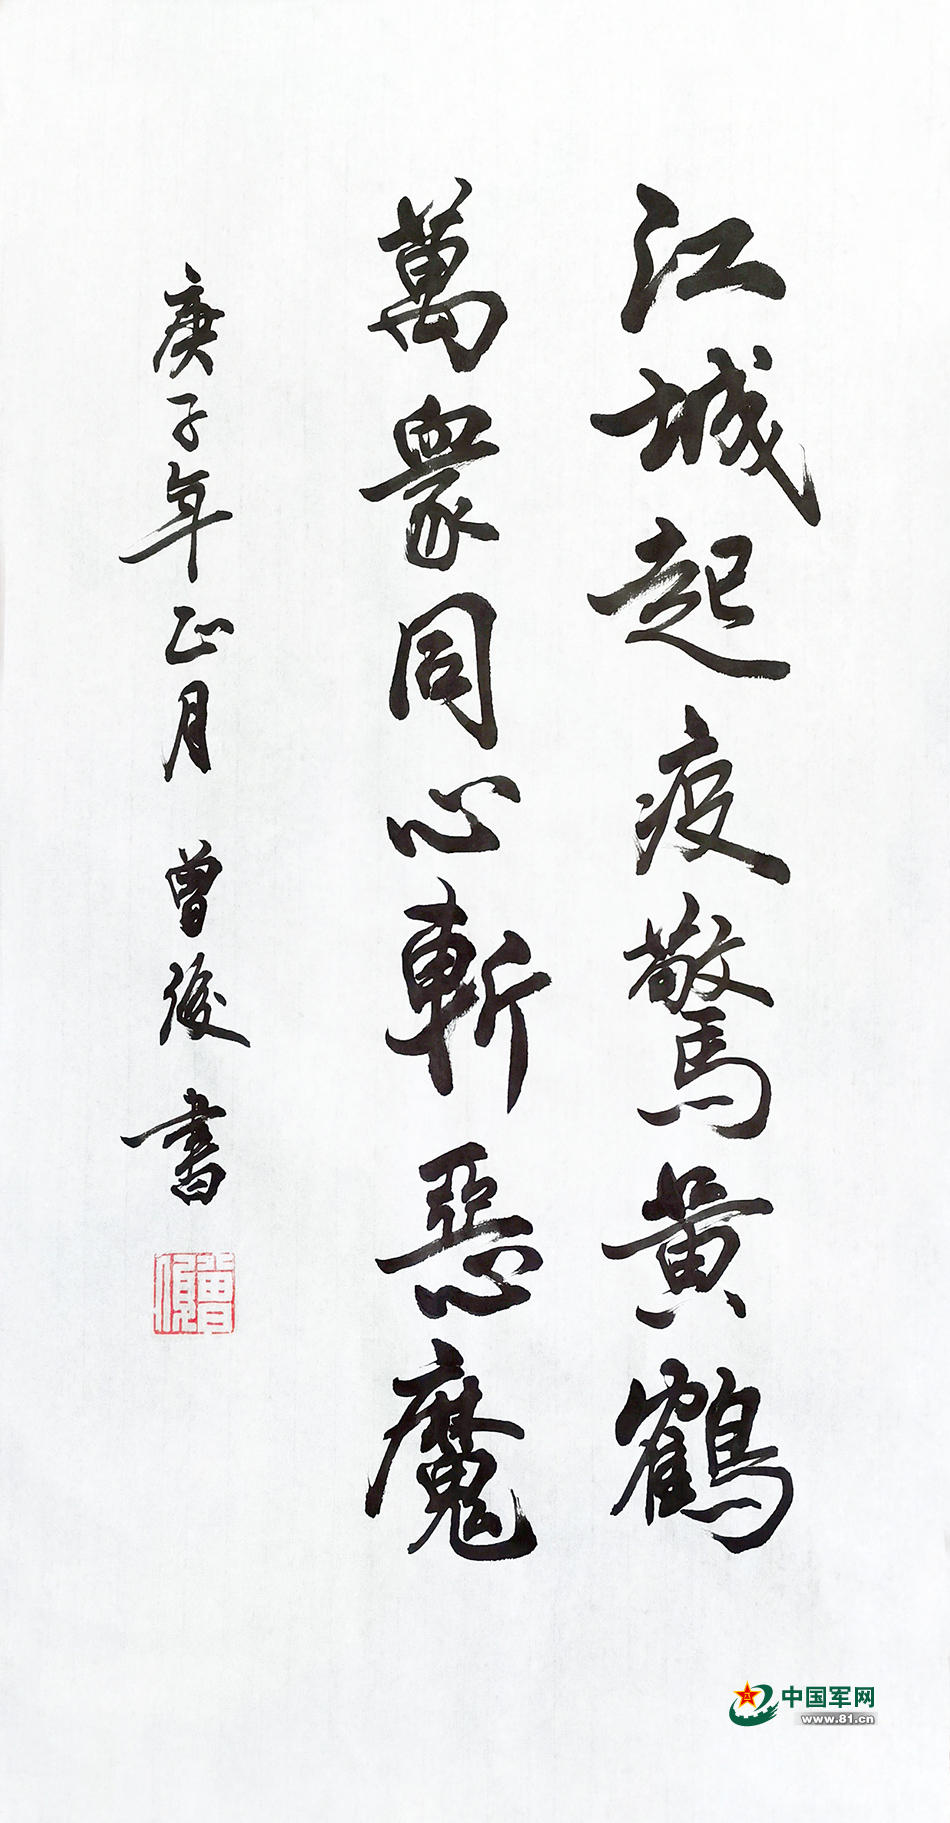 江城起疫驚黄鶴
萬衆同心斬惡魔
庚子年正月 曾後書
中国军网
www.81.cn